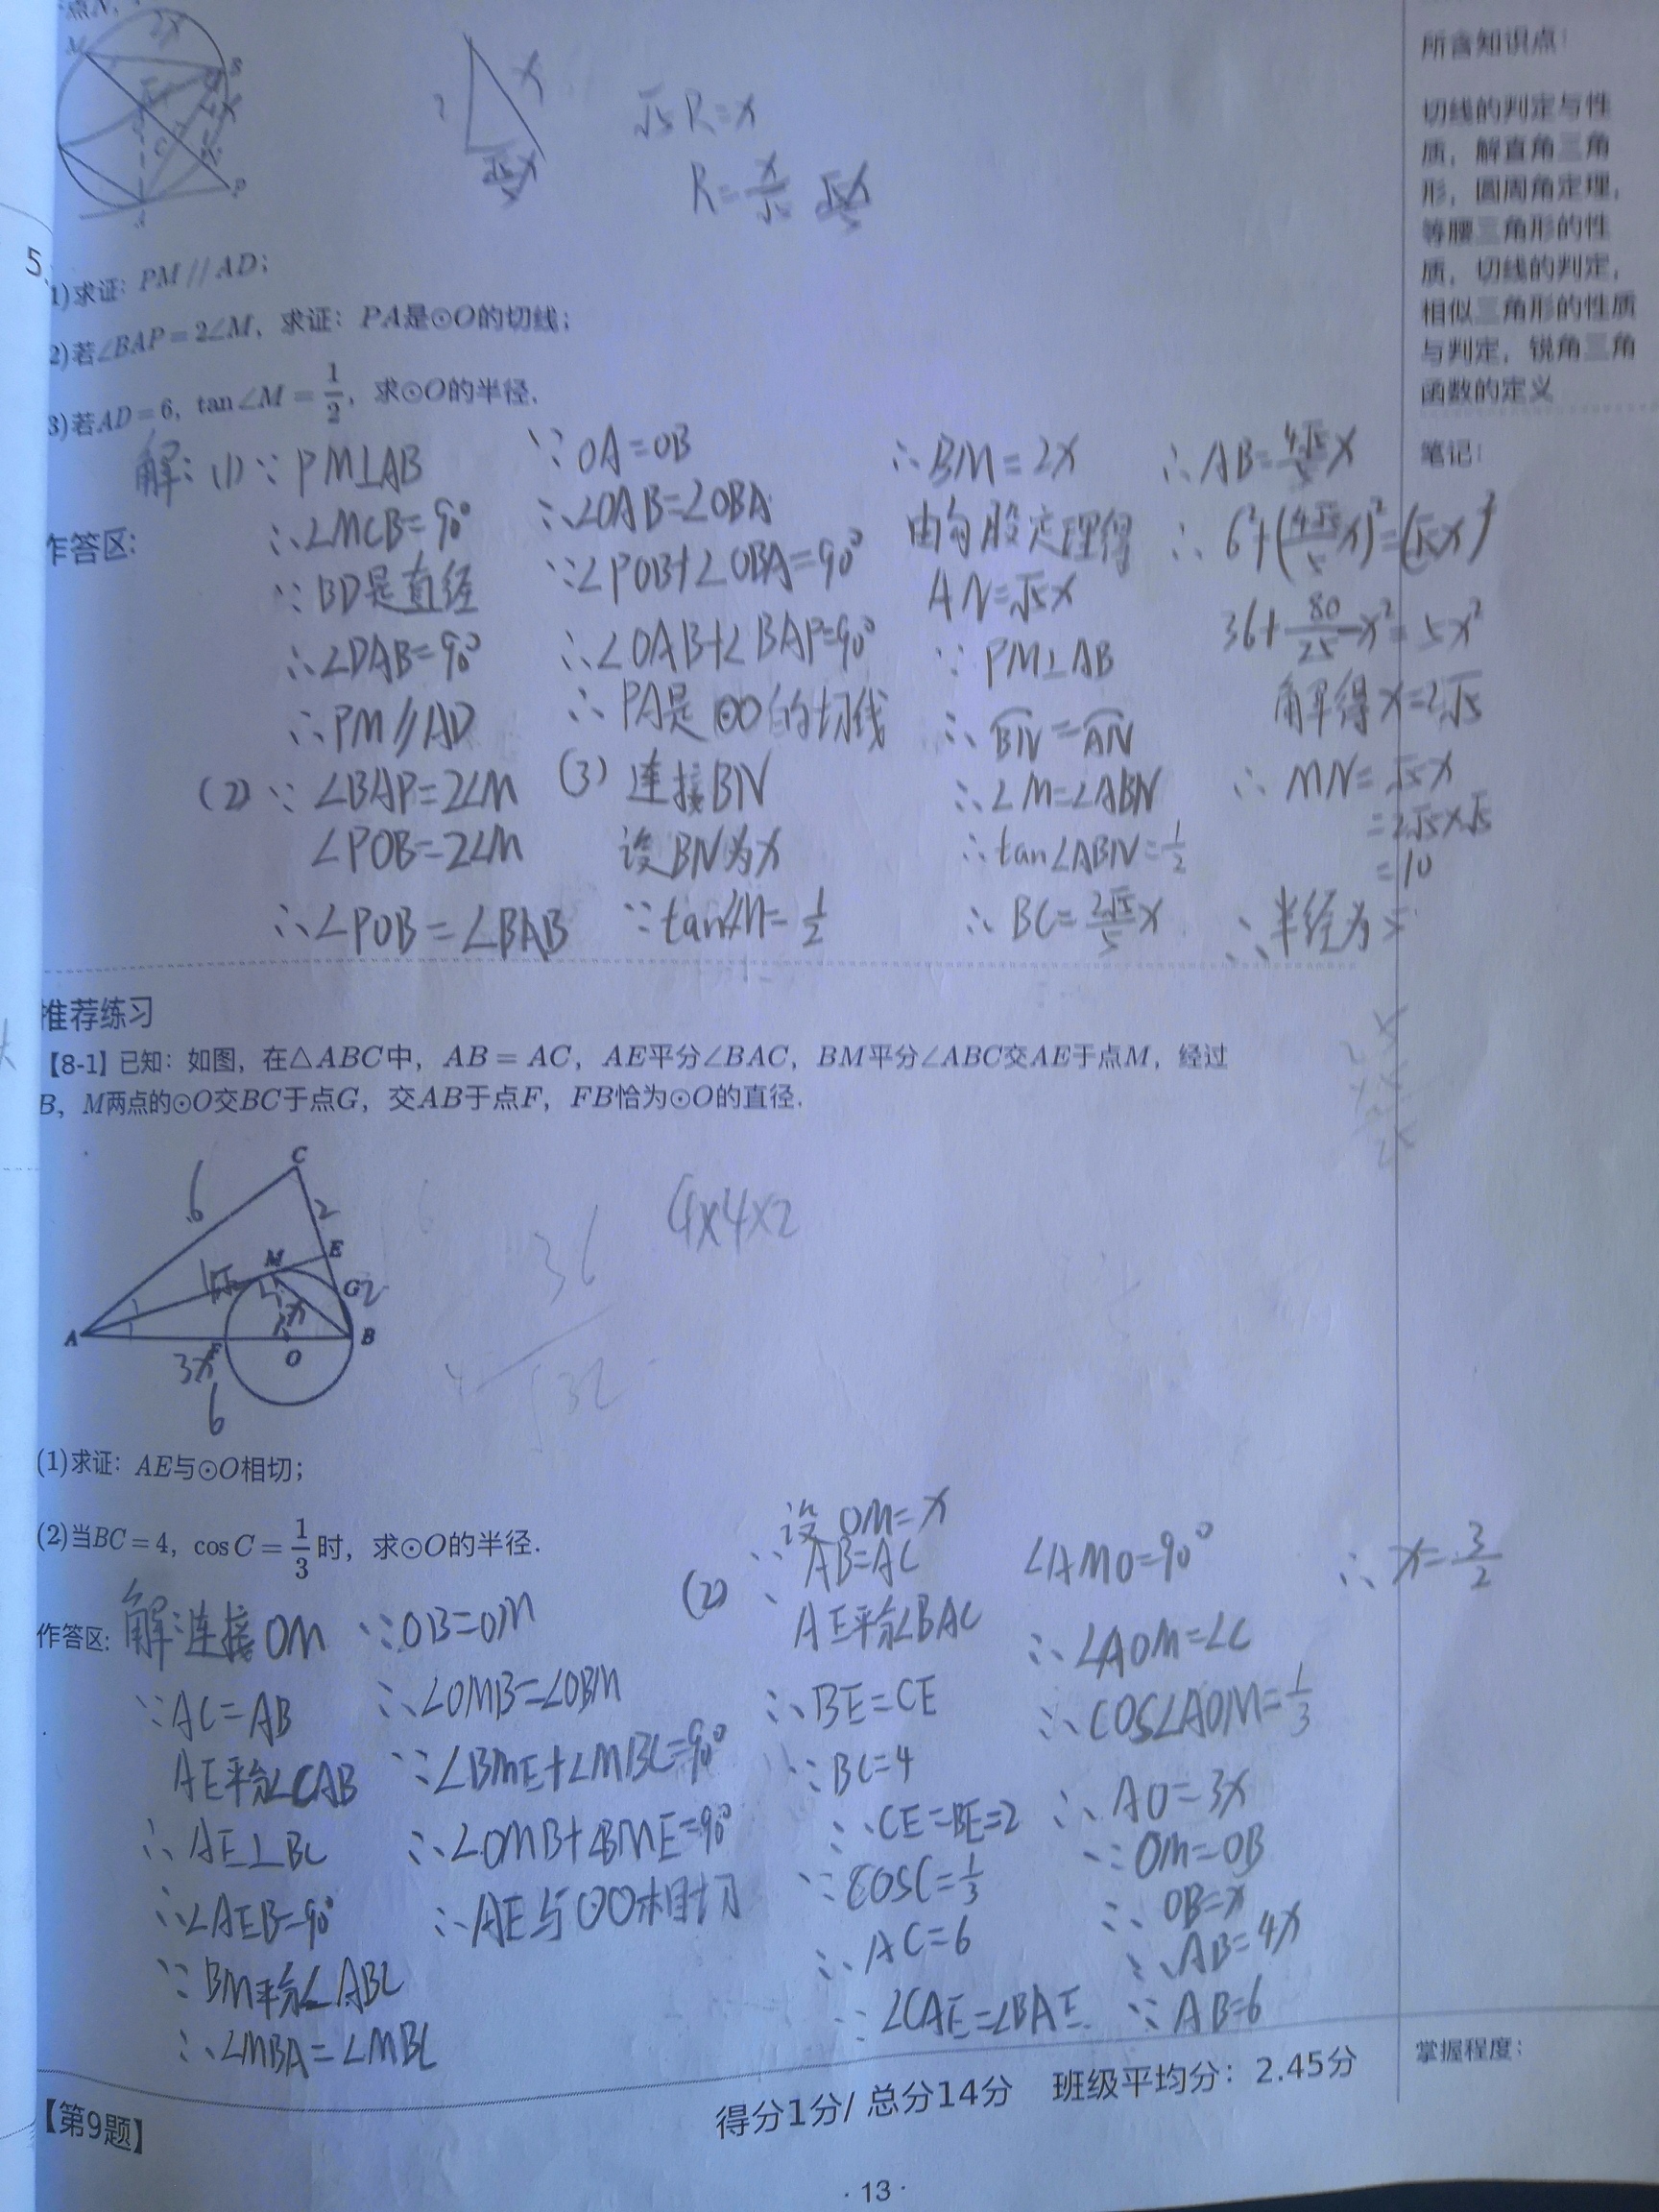 点N，
M
2x
S
P
x
√5R=x
R=x/√5 √5x/5
5、
1)求证：PM // AD；
2)若∠BAP=2∠M，求证：PA是⊙O的切线；
3)若AD=6，tan∠M=1/2，求⊙O的半径．
作答区：
解：(1)∵PM⊥AB
∴∠MCB=90°
∵BD是直径
∴∠DAB=90°
∴PM//AD
(2)∵∠BAP=2∠M
∠POB=2∠M
∴∠POB=∠BAB
∵OA=OB
∴∠OAB=∠OBA
∵∠POB+∠OBA=90°
∴∠OAB+∠BAP=90°
∴PA是⊙O的切线
(3)连接BN
设BN为x
∵tan∠M=1/2
∴BM=2x
由勾股定理得
AN=√5x
∵PM⊥AB
∴BN=AN
∴∠M=∠ABN
∴tan∠ABN=1/2
∴BC=2√5/5x
∴AB=4√5/5x
∴6²+(4√5/5x)²=(√5x)²
36+80/25x²=5x²
解得x=2√5
∴MN=√5x
=2√5×√5
=10
∴半径为5
所含知识点：
切线的判定与性
质，解直角三角
形，圆周角定理，
等腰三角形的性
质，切线的判定，
相似三角形的性质
与判定，锐角三角
函数的定义
笔记：
推荐练习
【8-1】已知：如图，在△ABC中，AB=AC，AE平分∠BAC，BM平分∠ABC交AE于点M，经过
B，M两点的⊙O交BC于点G，交AB于点F，FB恰为⊙O的直径．
C
6
2
E
M
G2
x
A
B
3x
F
O
6
36
4×4×2
(1)求证：AE与⊙O相切；
(2)当BC=4，cosC=1/3时，求⊙O的半径．
作答区：
解：连接OM
∵AC=AB
AE平分∠CAB
∴AE⊥BC
∴∠AEB=90°
∵BM平分∠ABC
∴∠MBA=∠MBC
∵OB=OM
∴∠OMB=∠OBM
∵∠BME+∠MBC=90°
∴∠OMB+∠BME=90°
∴AE与⊙O相切
设OM=x
(2)∵AB=AC
AE平分∠BAC
∴BE=CE
∵BC=4
∴CE=BE=2
∵COSC=1/3
∴AC=6
∵∠CAE=∠BAE
∠AMO=90°
∴∠AOM=∠C
∴COS∠AOM=1/3
∴AO=3x
∵OM=OB
∴OB=x
∴AB=4x
∵AB=6
∴x=3/2
掌握程度：
【第9题】
得分1分/ 总分14分 班级平均分：2.45分
· 13 ·